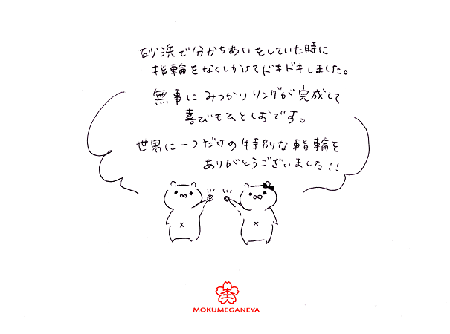 砂浜で分かちあいをしていた時に
指輪をなくしかけてドキドキしました。
無事にみつかりリングが完成して
喜びもひとしおです。
世界に一つだけの特別な指輪を
ありがとうございました!!
MOKUMEGANEYA